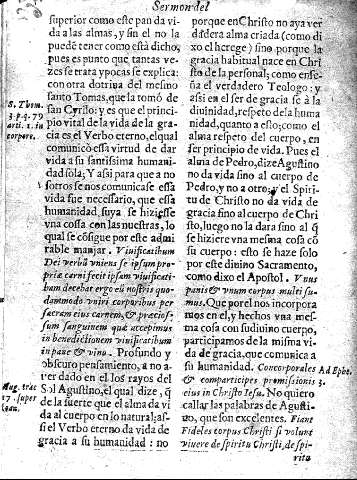 Sermon del
superior como este pan da vi
da a las almas, y sin el no la
puedē tener como está dicho,
pues es punto que tantas ve-
zes se trata y pocas se explica:
con otra dotrina del mesmo
santo Tomas, que la tomó de
san Cyrilo: y es que el princi-
pio vital de la vida de la gra-
cia es el Verbo eterno, el qual
comunicó essa virtud de dar
vida a su santissima humani-
dad sola; Y assi para que a no
sotros se nos comunicase essa
vida fue necessario, que essa
humanidad suya se hiziesse
vna cossa con las nuestras, lo
qual se cōsigue por este admi
rable manjar. Viuificatiuum
Dei verbū vniens se ipsum pro-
priæ carni fecit ipsam viuificati
bam decebat ergo eū nostris quo-
dammodo vniri corporibus per
sacram eius carnem, & pretios-
sum sanguinem quæ accepimus
in benedictionem viuificatiuam
in pane & vino. Profundo y
obscuro pensamiento, a no a-
uer dado en el los rayos del
Sol Agustino, el qual dize, q̄
de la suerte que el alma da vi
da al cuerpo en lo natural; as-
si el Verbo eterno da vida de
gracia a su humanidad: no
S. Thom.
3. p. q. 79
arti. 1. in
corpore.
Aug. trac
27. super
Ioan.
porque en Christo no aya ver
dadera alma criada (como di
xo el herege) sino porque la
gracia habitual nace en Chri
sto de la personal; como ense-
ña el verdadero Teologo: y
assi en el ser de gracia se á la
diuinidad, respeto de la huma
nidad, quanto a esto; como el
alma respeto del cuerpo, en
ser principio de vida. Pues el
alma de Pedro, dize Agustino
no da vida sino al cuerpo de
Pedro, y no a otro; y el Spiri-
tu de Christo no da vida de
gracia sino al cuerpo de Chri
sto, luego no la dara sino al q̄
se hiziere vna mesma cosa cō
su cuerpo: esto se haze solo
por este diuino Sacramento,
como dixo el Apostol. Vnus
panis & vnum corpus multi su-
mus. Que por el nos incorpora
mos en el, y hechos vna mes-
ma cosa con su diuino cuerpo,
participamos de la misma vi-
da de gracia, que comunica a
su humanidad. Concorporales
& comparticipes promissionis
eius in Christo Iesu. No quiero
callar las palabras de Agusti-
no, que son excelentes. Fiant
Fideles corpus Christi si volunt
viuere de spiritu Christi, de spi-
ritu
Ad Ephe.
3.